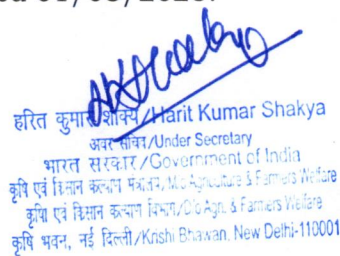 01/03/2023.
हरित कुमार शाक्य/Harit Kumar Shakya
अवर सचिव/Under Secretary
भारत सरकार/Government of India
कृषि एवं किसान कल्याण मंत्रालय, M/o Agriculture & Farmers Welfare
कृषि एवं किसान कल्याण विभाग/D/o Agri. & Farmers Welfare
कृषि भवन, नई दिल्ली/Krishi Bhawan, New Delhi-110001